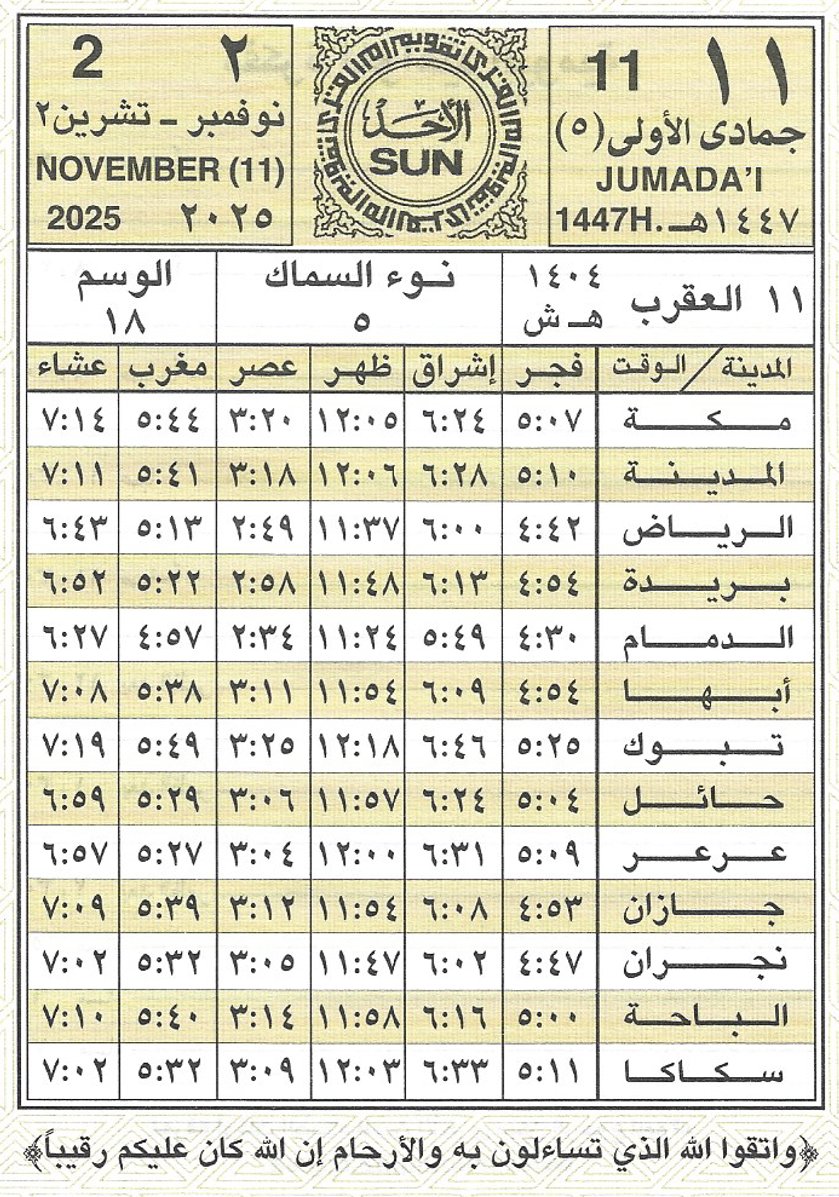 ١١ 11
جمادى الأولى (٥)
JUMADA'I
1447H. ١٤٤٧هـ
الأحد
SUN
2 ٢
نوفمبر - تشرين٢
NOVEMBER (11)
2025 ٢٠٢٥
١١ العقرب ١٤٠٤ هـ ش
نوء السماك ٥
الوسم ١٨
المدينة / الوقت فجر إشراق ظهر عصر مغرب عشاء
مكة ٥:٠٧ ٦:٢٤ ١٢:٠٥ ٣:٢٠ ٥:٤٤ ٧:١٤
المدينة ٥:١٠ ٦:٢٨ ١٢:٠٦ ٣:١٨ ٥:٤١ ٧:١١
الرياض ٤:٤٢ ٦:٠٠ ١١:٣٧ ٢:٤٩ ٥:١٣ ٦:٤٣
بريدة ٤:٥٤ ٦:١٣ ١١:٤٨ ٢:٥٨ ٥:٢٢ ٦:٥٢
الدمام ٤:٣٠ ٥:٤٩ ١١:٢٤ ٢:٣٤ ٤:٥٧ ٦:٢٧
أبها ٤:٥٤ ٦:٠٩ ١١:٥٤ ٣:١١ ٥:٣٨ ٧:٠٨
تبوك ٥:٢٥ ٦:٤٦ ١٢:١٨ ٣:٢٥ ٥:٤٩ ٧:١٩
حائل ٥:٠٤ ٦:٢٤ ١١:٥٧ ٣:٠٦ ٥:٢٩ ٦:٥٩
عرعر ٥:٠٩ ٦:٣١ ١٢:٠٠ ٣:٠٤ ٥:٢٧ ٦:٥٧
جازان ٤:٥٣ ٦:٠٨ ١١:٥٤ ٣:١٢ ٥:٣٩ ٧:٠٩
نجران ٤:٤٧ ٦:٠٢ ١١:٤٧ ٣:٠٥ ٥:٣٢ ٧:٠٢
الباحة ٥:٠٠ ٦:١٦ ١١:٥٨ ٣:١٤ ٥:٤٠ ٧:١٠
سكاكا ٥:١١ ٦:٣٣ ١٢:٠٣ ٣:٠٩ ٥:٣٢ ٧:٠٢
﴿واتقوا الله الذي تساءلون به والأرحام إن الله كان عليكم رقيباً﴾